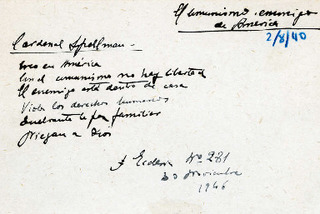 El comunismo enemigo
de America
2/8/40
Cardenal Spellman -
en America
En el comunismo no hay libertad
El enemigo está dentro de casa
Viola los derechos humanos
la paz familiar
Niegan a Dios
Nº 281
Noviembre
1946